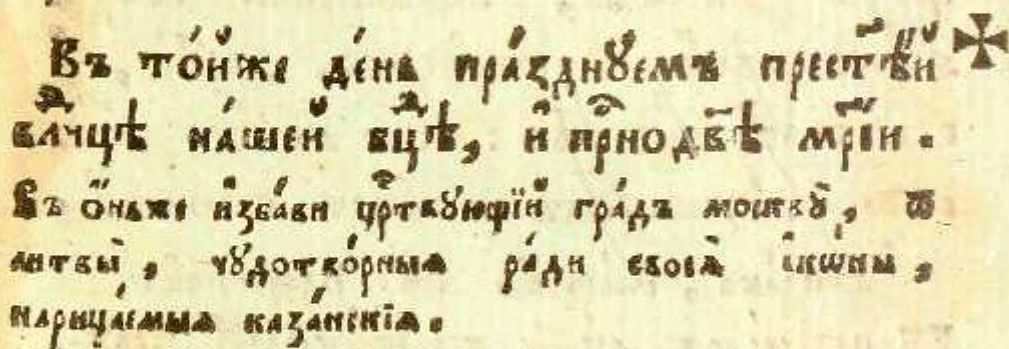 Въ то́йже де́нь пра́зднꙋемъ прест҃ѣ́й
влⷣчцѣ на́шей бцⷣѣ, и҆ прⷭ҇нодв҃ѣ мр҃і́и.
Въ ѻ҆́ньже и҆зба́ви црⷭ҇твꙋ́ющїй гра́дъ москвꙋ̀, ѿ
литвы̀, чꙋдотво́рныѧ ра́ди своеѧ̀ і҆кѡ́ны,
нарица́емыѧ каза́нскїѧ.